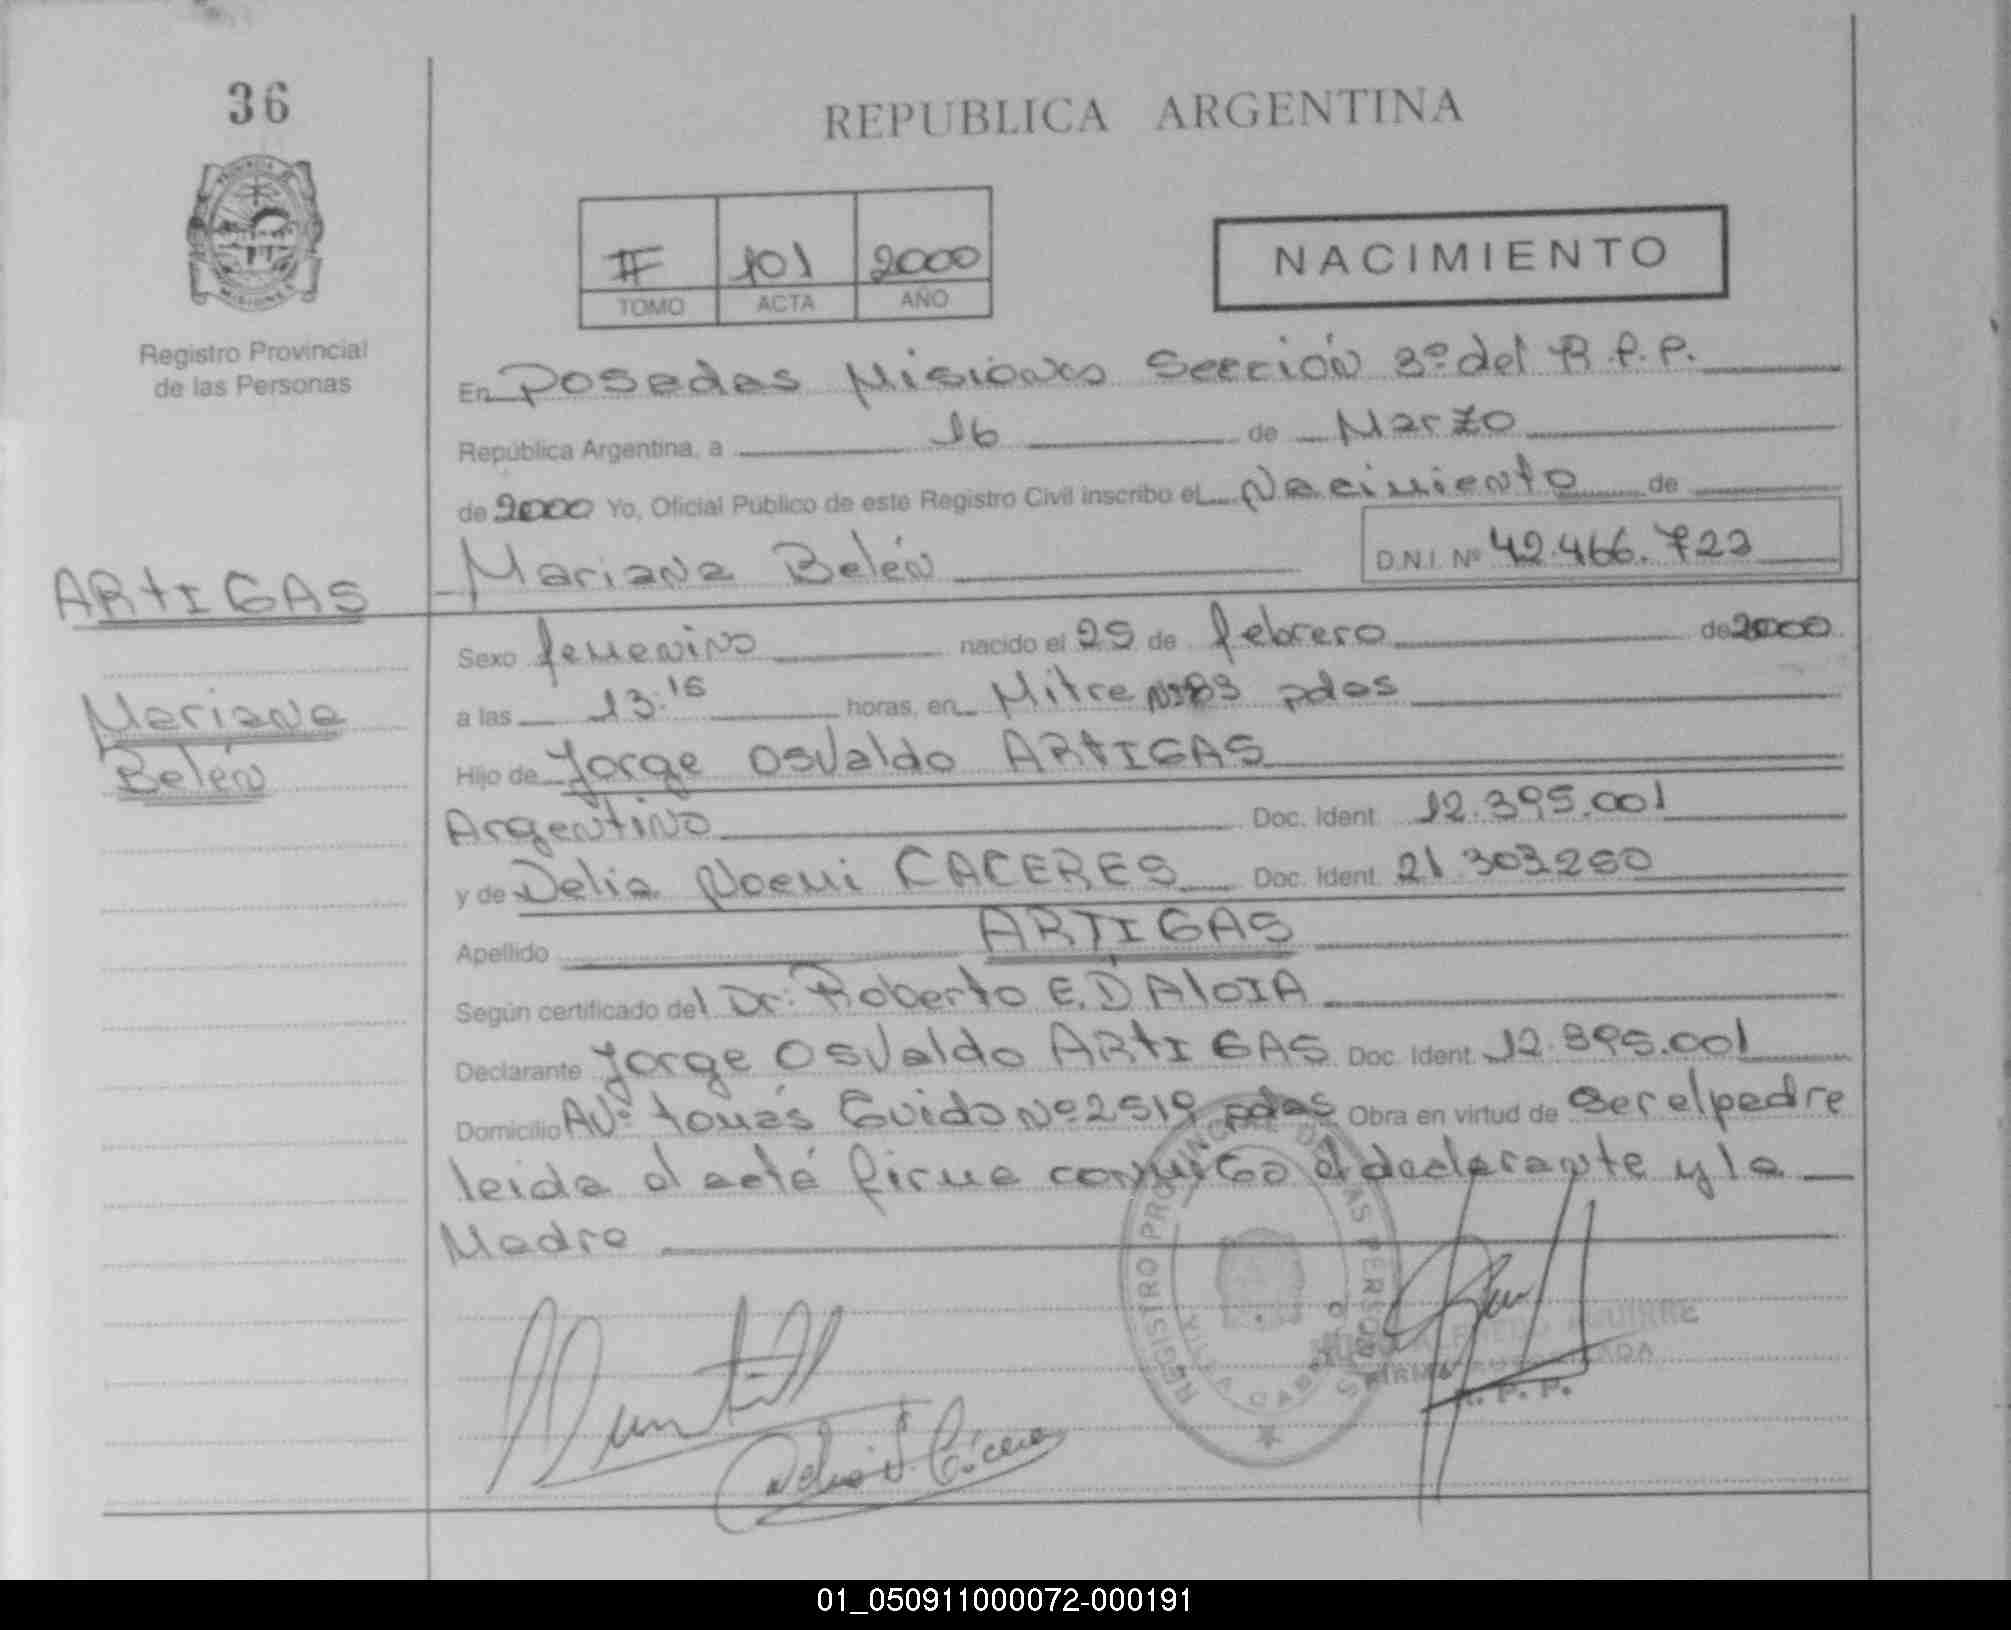 36
REPUBLICA ARGENTINA
Registro Provincial
de las Personas
II 101 2000
TOMO ACTA AÑO
NACIMIENTO
En Posadas Misiones Sección 3º del R.P.P.
República Argentina, a 16 de Marzo
de 2000 Yo, Oficial Público de este Registro Civil inscribo el Nacimiento de
Mariana Belén D.N.I. Nº 42.466.722
ARtIGAS
Mariana
Belén
Sexo femenino nacido el 25 de febrero de 2000
a las 13:15 horas, en Mitre Nº 83 pdas
Hijo de Jorge Osvaldo ARtIGAS
Argentino Doc. Ident 12.395.001
y de Delia Noemi CACERES Doc. Ident. 21.303250
Apellido ARTIGAS
Según certificado del Dr: Roberto E. D'AloIA
Declarante Jorge Osvaldo ARtIGAS Doc. Ident. 12.395.001
Domicilio Avº tomás Guido Nº 2519 pdas Obra en virtud de ser el padre
leida el acta firma conmigo el declarante y la
Madre
REGISTRO PROVINCIAL DE LAS PERSONAS
VILLA CABELLO
AGUIRRE
FIRMA AUTORIZADA
R. P. P.
01_050911000072-000191